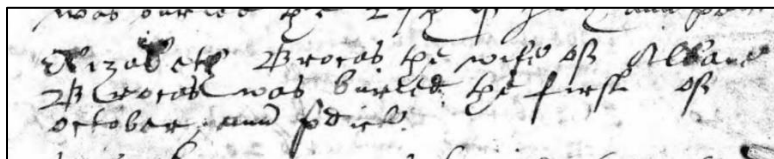 was buried the 27th of
Elizabeth Brocas the wife of Albane
Brocas was buried the first of
october, anno pdict.